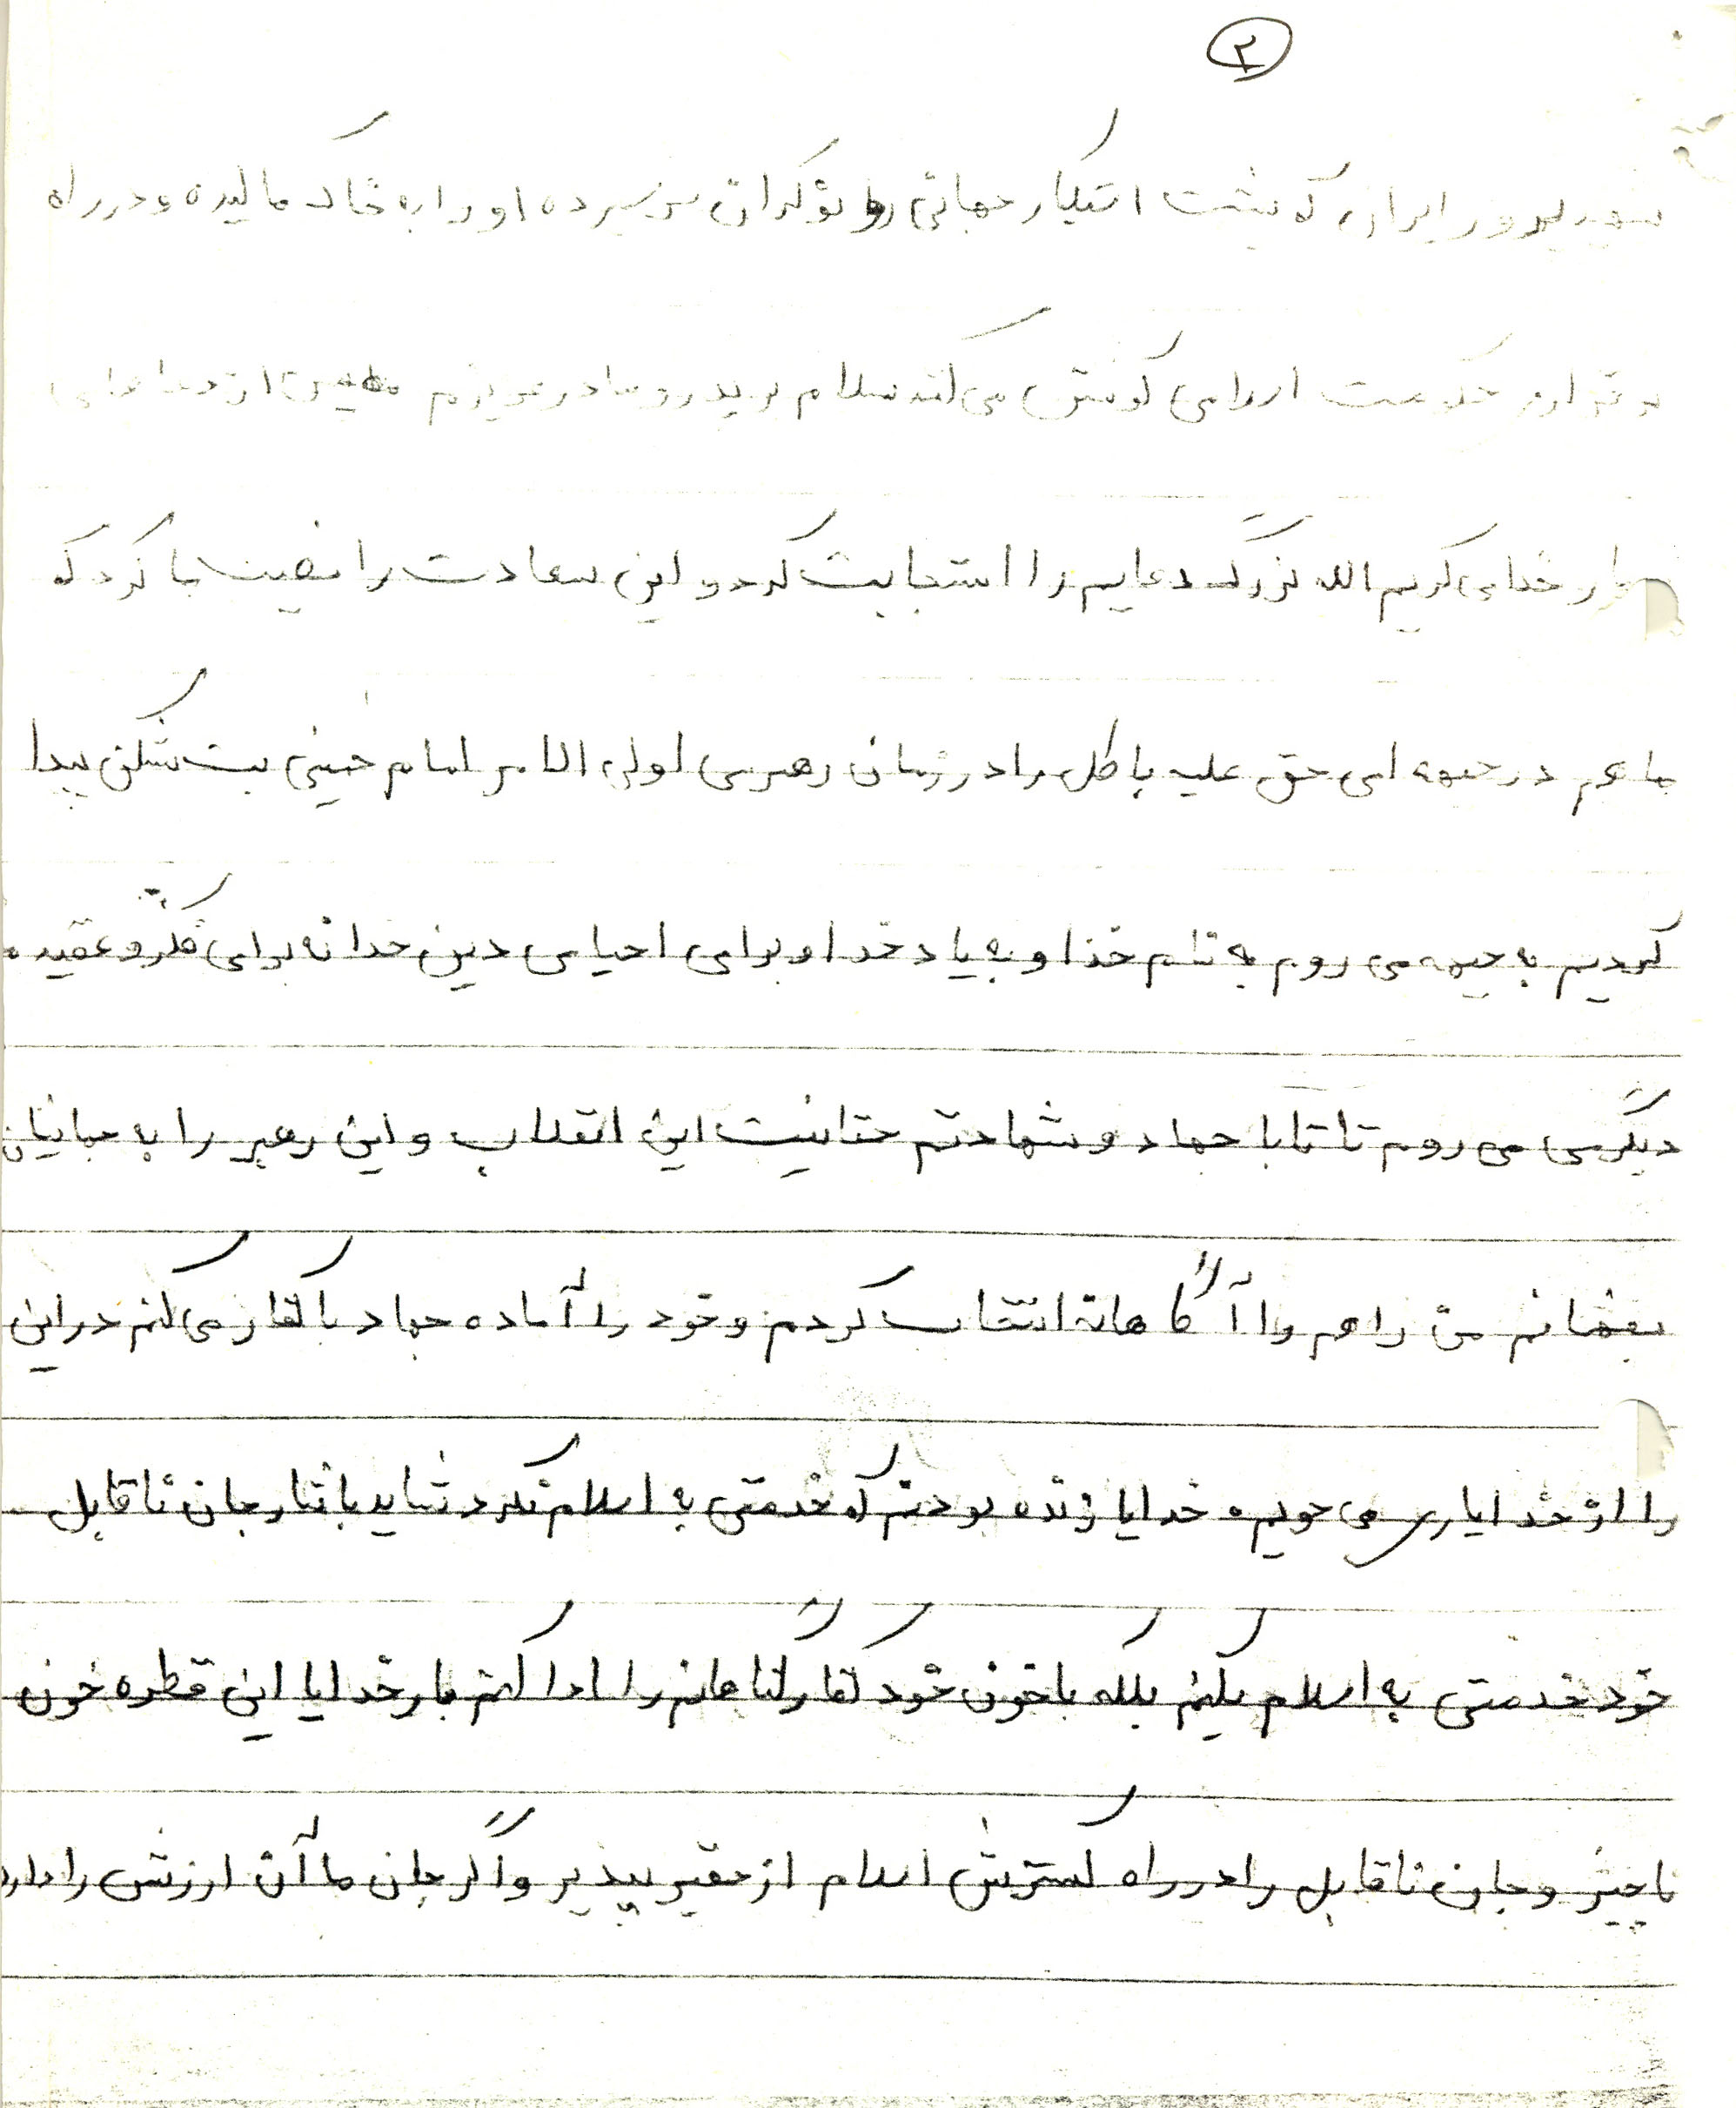 ۲
شهید پرور ایران که پشت استکبار جهانی و نوکران سرسپرده او را به خاک مالیده و در راه
حکومت کوشش می کنند سلام بر پدر و مادر عزیزم
خدای کریم الله بزرگ دعایم را استجابت کرد و این سعادت را نصیب ما کرد که
ما هم در جبهه ای حق علیه باطل را در زمان رهبری اولی الامر امام خمینی بت شکن پیدا
کردیم به جبهه می روم به نام خدا و به یاد خدا و برای احیای دین خدا نه برای فکر و عقیده
دیگری می روم تا با جهاد و شهادتم حقانیت این انقلاب و این رهبر را به جهانیان
بفهمانم من راهم را آگاهانه انتخاب کردم و خود را آماده جهاد با کفار می کنم در این
را از خدا یاری می جویم خدایا زنده بودنم که خدمتی به اسلام نکرد شاید با نثار جان ناقابل
خود خدمتی به اسلام بکنم بلکه با خون خود کفاره گناهانم را ادا کنم بار خدایا این قطره خون
ناچیز و جان ناقابل را در راه گسترش اسلام از حقیر بپذیر و اگر جان ما آن ارزش را دارد